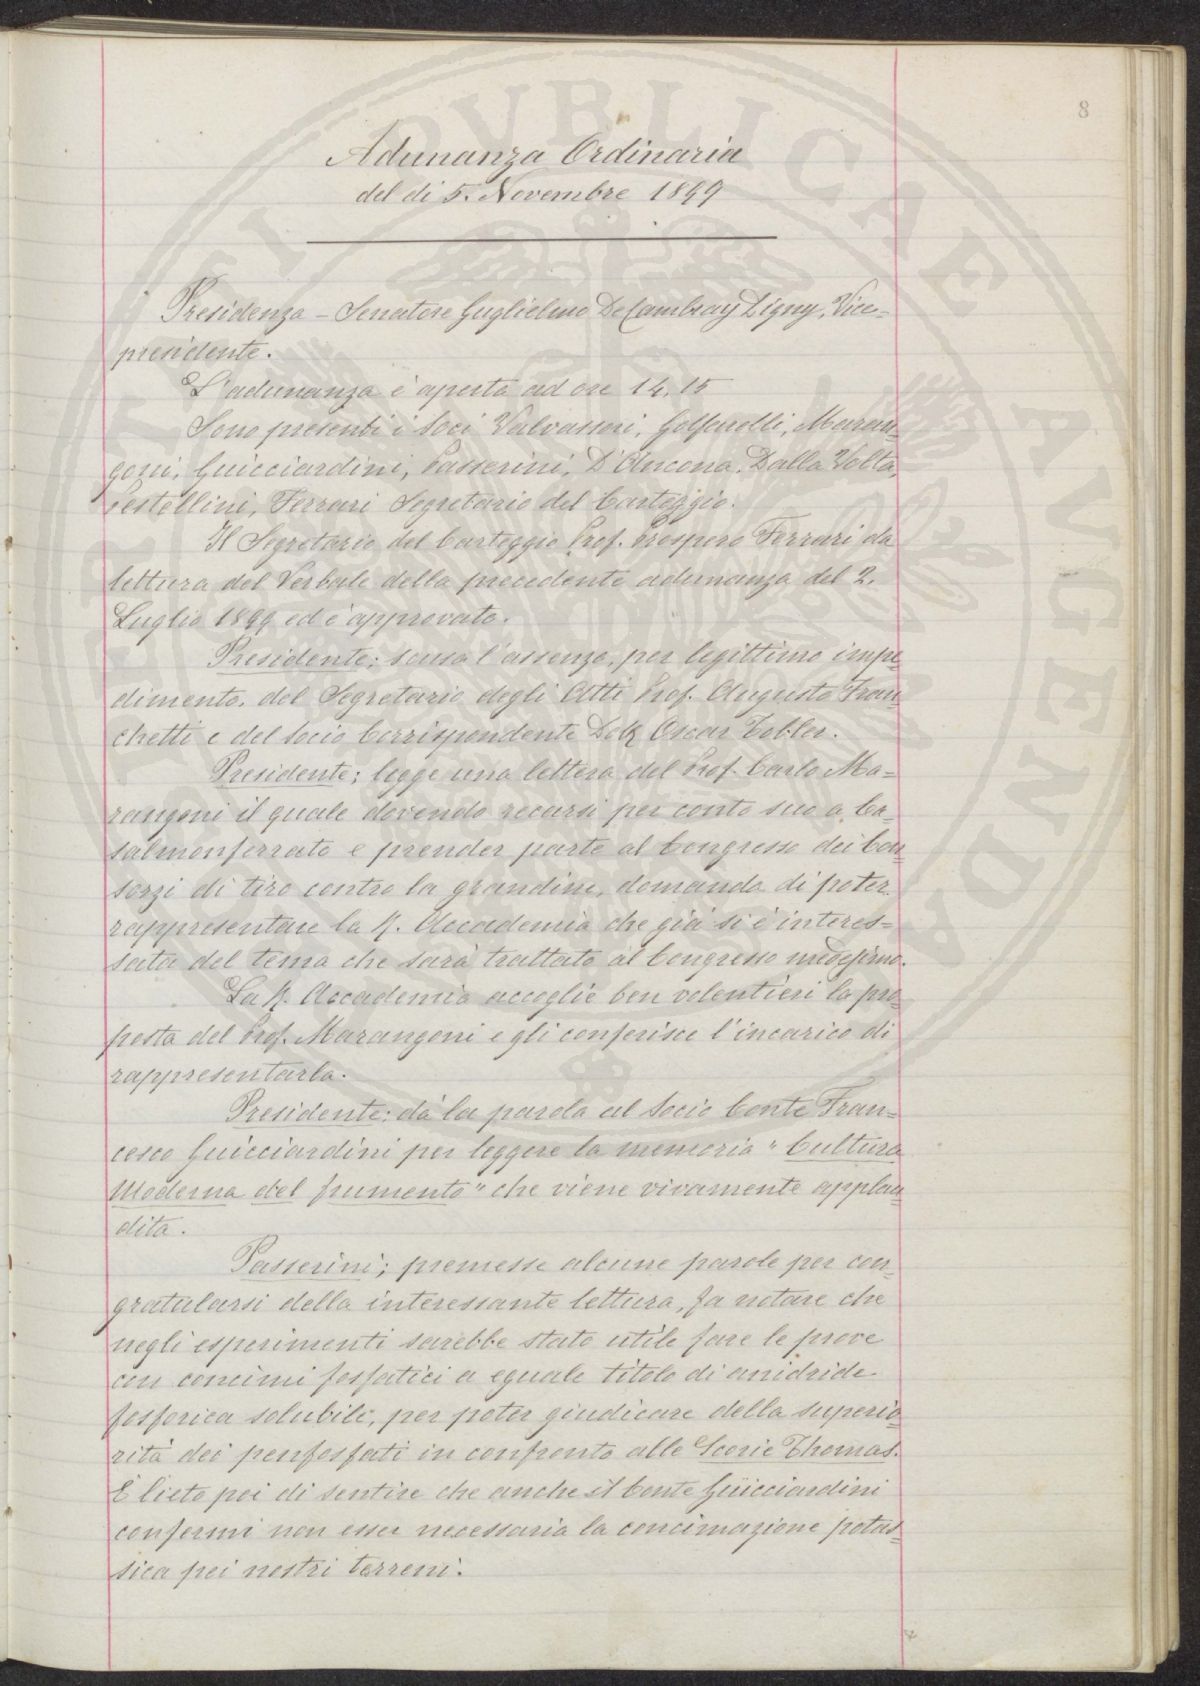 8
Adunanza Ordinaria
del dì 5. Novembre 1899
Presidenza – Senatore Guglielmo De Cambray Digny, Vice=
presidente.
L'adunanza è aperta ad ore 14,15
Sono presenti i Soci Valvassori, Golfarelli, Maran=
goni, Guicciardini, Passerini, D'Ancona, Dalla Volta,
Pestellini, Ferrari Segretario del Carteggio.
Il Segretario del Carteggio Prof. Prospero Ferrari da
lettura del Verbale della precedente adunanza del 2.
Luglio 1899 ed è approvato.
Presidente; scusa l'assenza, per legittimo impe=
dimento, del Segretario degli Atti Prof. Augusto Fran=
chetti e del Socio Corrispondente Dott. Oscar Tobler.
Presidente; legge una lettera del Prof. Carlo Ma=
rangoni il quale dovendo recarsi per conto suo a Ca=
salmonferrato e prender parte al Congresso dei Con=
sorzi di tiro contro la grandine, domanda di poter
rappresentare la R. Accademia che già si è interes=
sata del tema che sarà trattato al Congresso medesimo.
La R. Accademia accoglie ben volentieri la pro=
posta del Prof. Marangoni e gli conferisce l'incarico di
rappresentarla.
Presidente: dà la parola al Socio Conte Fran=
cesco Guicciardini per leggere la memoria "Cultura
Moderna del frumento" che viene vivamente applau=
dita.
Passerini; premesse alcune parole per con=
gratularsi della interessante lettura, fa notare che
negli esperimenti sarebbe stato utile fare le prove
con concimi fosfatici a eguale titolo di anidride
fosforica solubile, per poter giudicare della superio=
rità dei perfosfati in confronto alle Scorie Thomas.
È lieto poi di sentire che anche il Conte Guicciardini
confermi non esser necessaria la concimazione potas=
sica pei nostri terreni.
PROSPERITATI PUBLICAE AUGENDAE